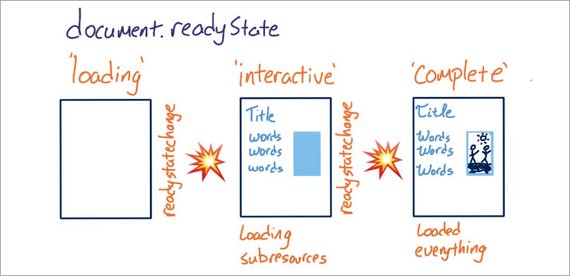 document.readyState
'loading'
readystatechange
'interactive'
Title
words
words
words
Loading
subresources
readystatechange
'Complete'
Title
Words
Words
Words
Loaded
everything